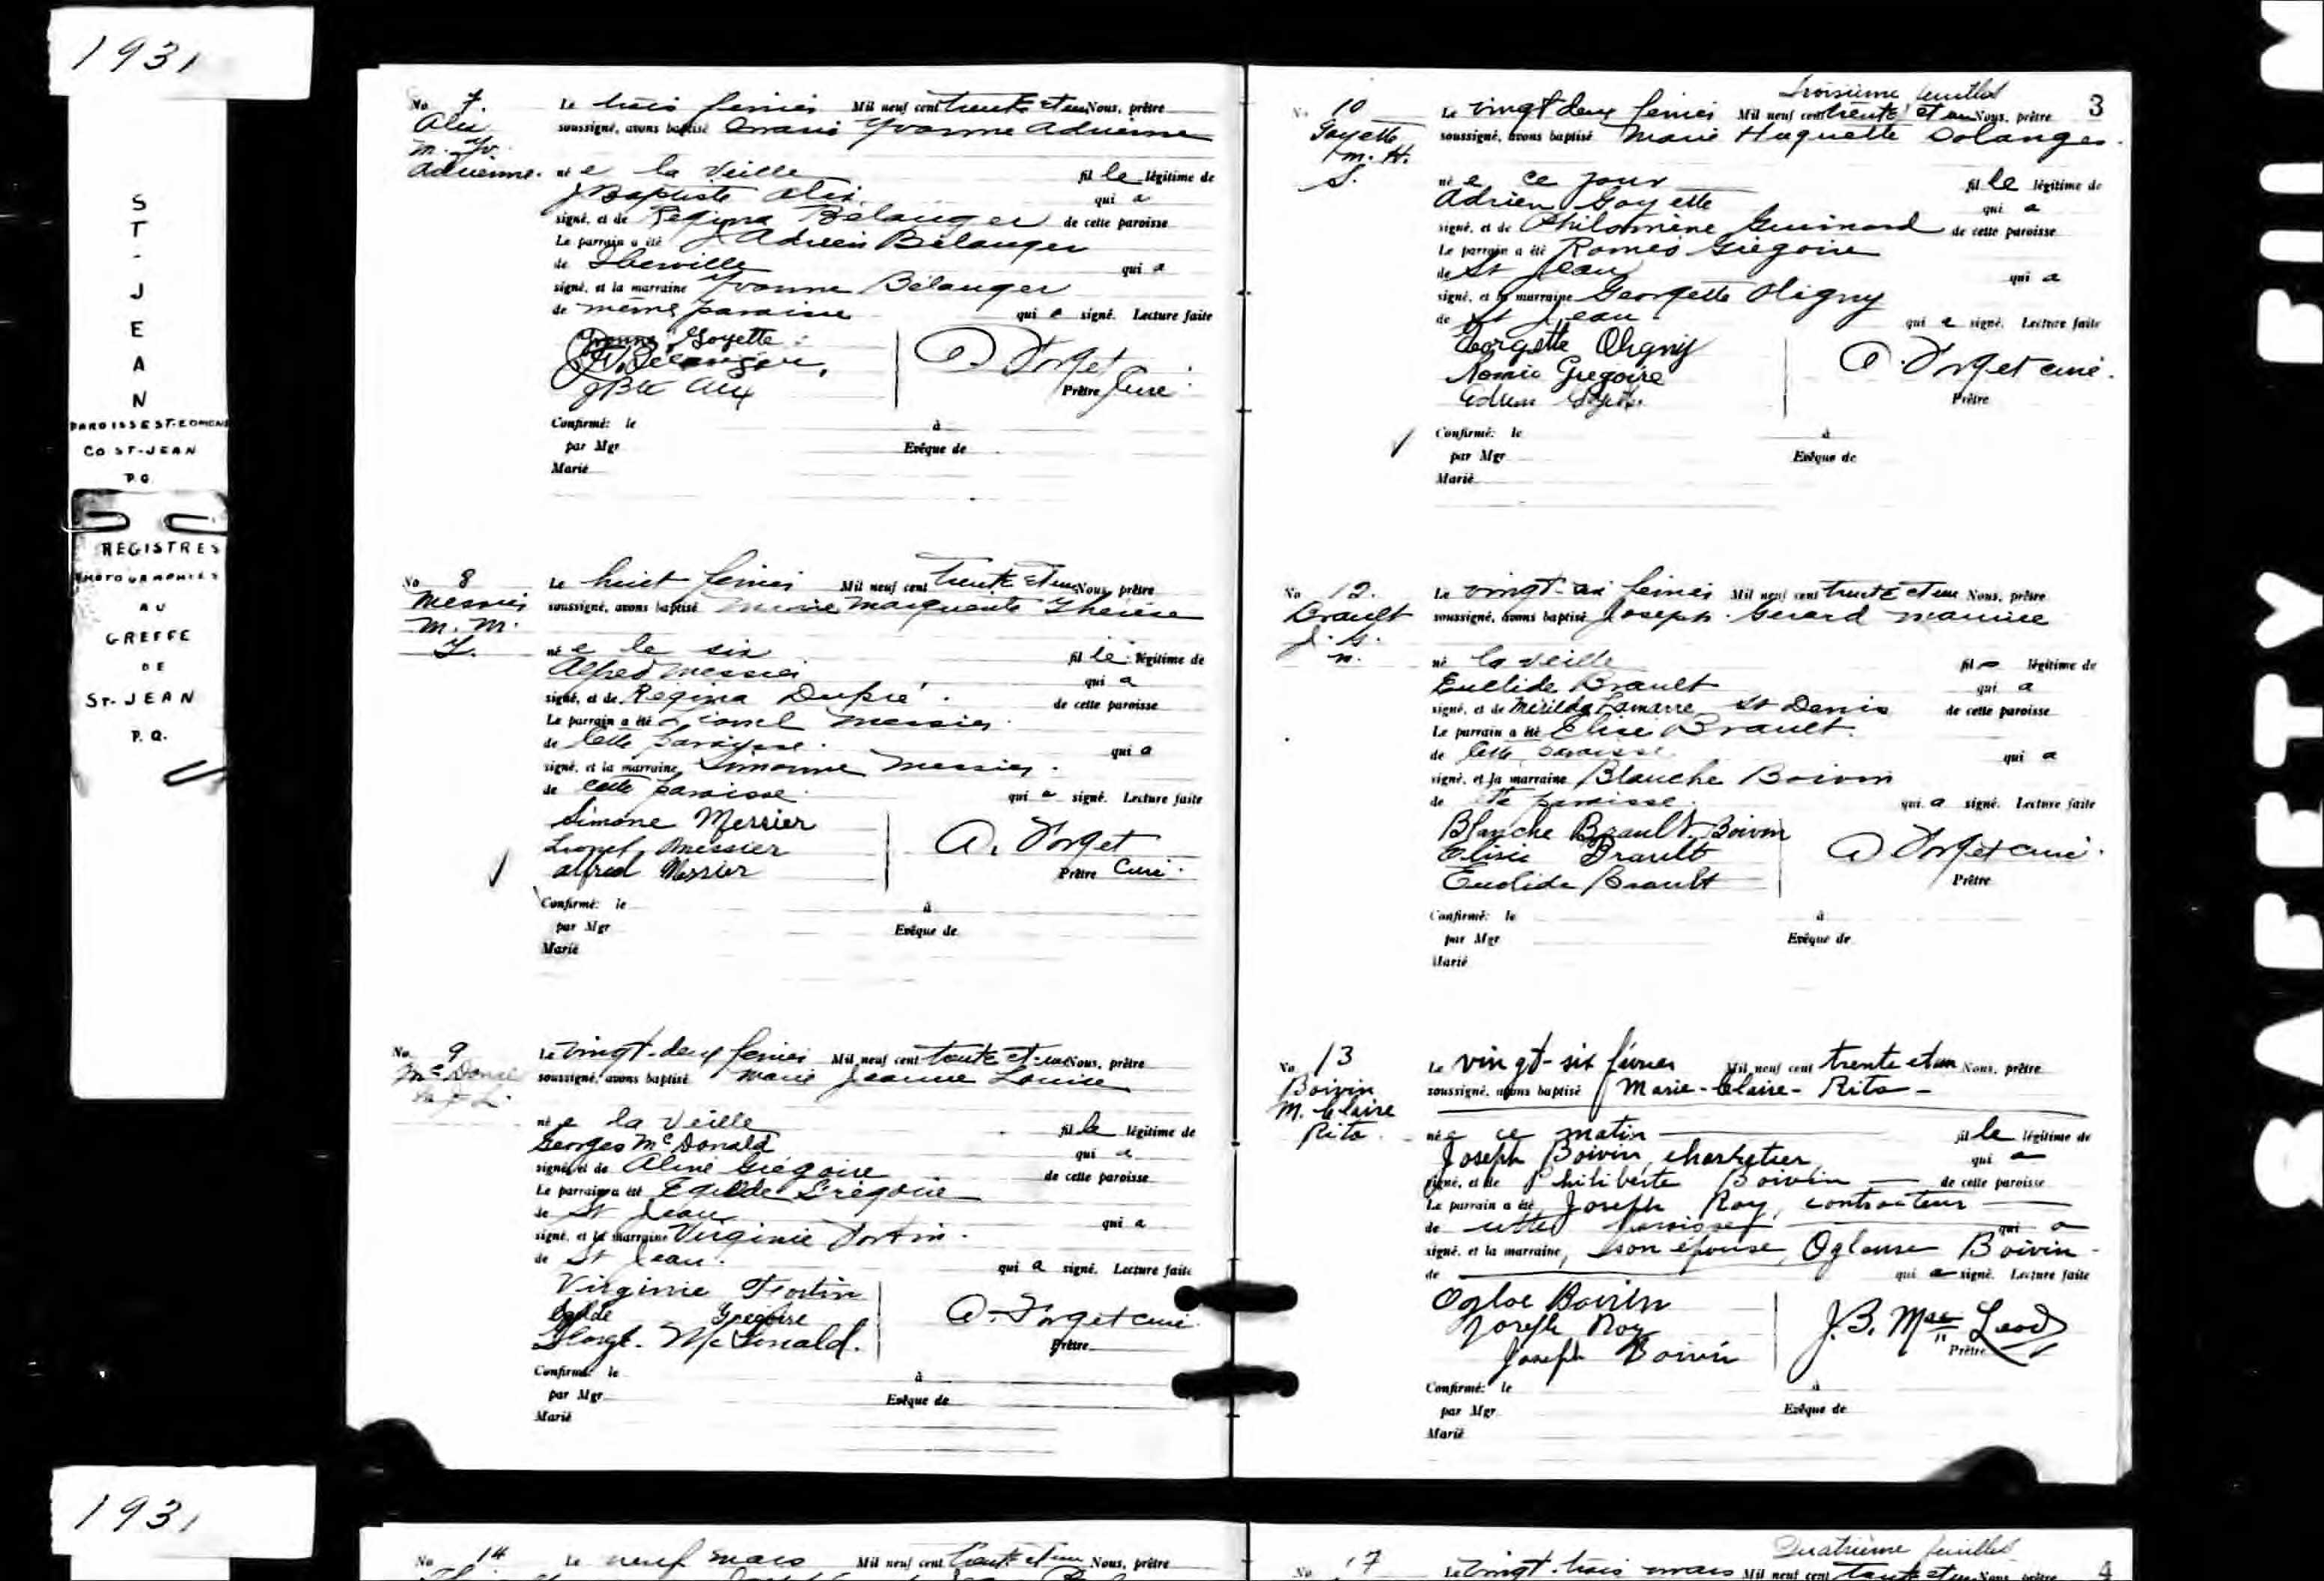 1931
ST-JEAN
PAROISSE ST-EDMOND
CO ST-JEAN
P.Q.
REGISTRES
PHOTOGRAPHIÉS
AU
GREFFE
DE
ST-JEAN
P.Q.
1931
No 7. Le trois février Mil neuf cent trente et un Nous, prêtre
Alix soussigné, avons baptisé Marie Yvonne Adrienne
m. Yv.
Adrienne. née la veille fille légitime de
J Baptiste Alix qui a
signé, et de Régina Bélanger de cette paroisse
Le parrain a été J. Adrien Bélanger
de Iberville qui a
signé, et la marraine Yvonne Bélanger
de même paroisse qui a signé. Lecture faite
Yvonne Goyette
Bélanger
JBte Alix
A. Forget
Prêtre Curé
Confirmé: le à
par Mgr Evêque de
Marié
No 8 Le huit février Mil neuf cent trente et un Nous, prêtre
Messier soussigné, avons baptisé Marie Marguerite Thérèse
m. m.
T. née le six fille légitime de
Alfred Messier qui a
signé, et de Régina Dupré de cette paroisse
Le parrain a été Lionel Messier
de cette paroisse. qui a
signé, et la marraine Simonne Messier.
de cette paroisse. qui a signé. Lecture faite
Simone Messier
Lionel Messier
alfred Messier
A. Forget
Prêtre Curé.
Confirmé: le à
par Mgr Evêque de
Marié
No 9 Le vingt-deux février Mil neuf cent trente et un Nous, prêtre
soussigné, avons baptisé Marie Jeanne Louise
née la veille fille légitime de
Georges McDonald qui a
signé, et de Aline Grégoire de cette paroisse
Le parrain a été Egilde Grégoire
de St Jean qui a
signé, et la marraine Virginie Fortin.
de St Jean. qui a signé. Lecture faite
Virginie Fortin
Egilde Grégoire
McDonald.
A. Forget curé
Prêtre
Confirmé: le à
par Mgr Evêque de
Marié
Troisième feuillet
3
No 10 Le vingt deux février Mil neuf cent trente et un Nous, prêtre
Goyette soussigné, avons baptisé Marie Huguette Solanges.
m. H.
S. née ce jour fille légitime de
Adrien Goyette qui a
signé, et de Philomène Guimond de cette paroisse
Le parrain a été Roméo Grégoire
de St Jean qui a
signé, et la marraine Georgette Oligny
de St Jean. qui a signé. Lecture faite
Georgette Oligny
Roméo Grégoire
A. Forget curé.
Prêtre
Confirmé: le à
par Mgr Evêque de
Marié
No 12. Le vingt-six février Mil neuf cent trente et un Nous, prêtre
Brault soussigné, avons baptisé Joseph Gérard Maurice
J. G.
m. né la veille fils légitime de
Euclide Brault qui a
signé, et de Mérilda Lamarre St Denis de cette paroisse
Le parrain a été Elisée Brault.
de cette paroisse qui a
signé, et la marraine Blanche Boivin
de cette paroisse. qui a signé. Lecture faite
Blanche Brault Boivin
Elisée Brault
Euclide Brault
A. Forget curé.
Prêtre
Confirmé: le à
par Mgr Evêque de
Marié
No 13 Le vingt-six février Mil neuf cent trente et un Nous, prêtre
Boivin soussigné, avons baptisé Marie-Claire-Rita-
M. Claire
Rita. née ce matin fille légitime de
Joseph Boivin, charretier qui a
signé, et de Philiberte Boivin de cette paroisse
Le parrain a été Joseph Roy, contracteur
de cette paroisse qui a
signé, et la marraine, son épouse, Boivin-
de qui a signé. Lecture faite
Boivin
Joseph Roy
Joseph Boivin
J.B. Mac Leod
Prêtre
Confirmé: le à
par Mgr Evêque de
Marié
No 14 Le neuf mars Mil neuf cent trente et un Nous, prêtre
Quatrième feuillet
4
No 17 Le vingt-trois mars Mil neuf cent trente et un Nous, prêtre
SAFETY FILM